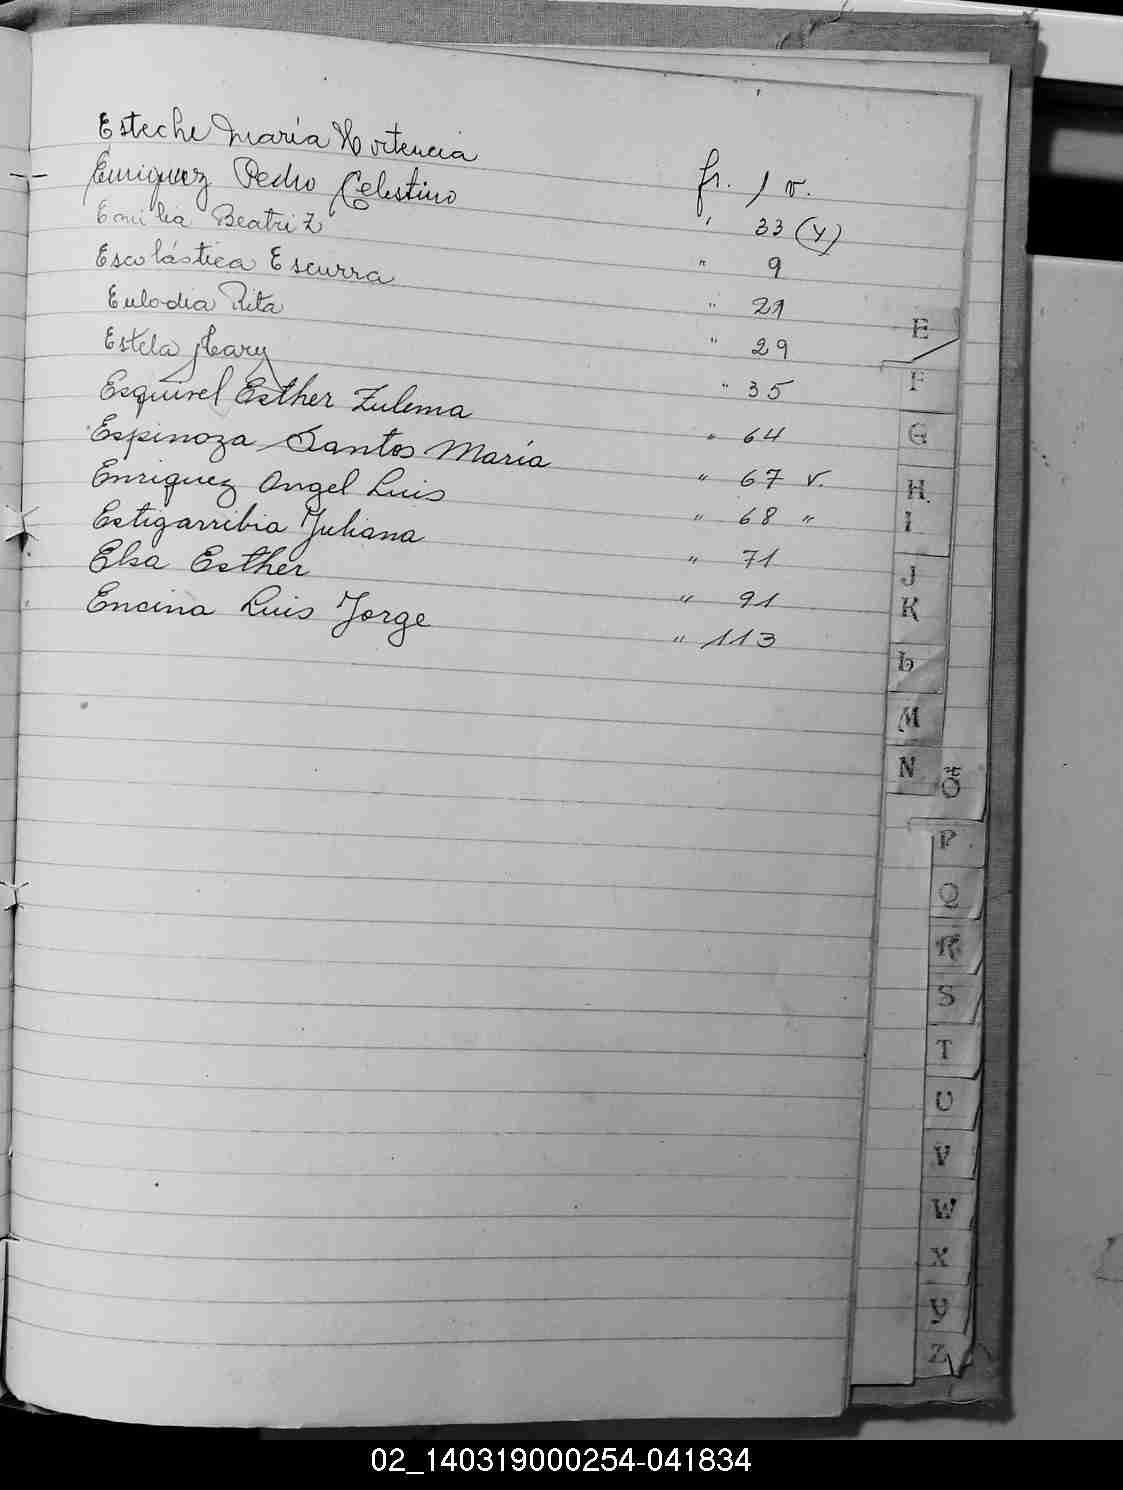 Esteche María Hortencia fr. 1 v.
Enriquez Pedro Celestino " 33 (v)
Emilia Beatriz " 9
Escolástica Escurra " 21
Eulodia Rita " 29
Estela Mary " 35
Esquivel Esther Zulema " 64
Espinoza Santos María " 67 v.
Enriquez Angel Luis " 68 "
Estigarribia Juliana " 71
Elsa Esther " 91
Encina Luis Jorge " 113
E
F
G
H
I
J
K
L
M
N
Ñ
O
P
Q
R
S
T
U
V
W
X
Y
Z
02_140319000254-041834